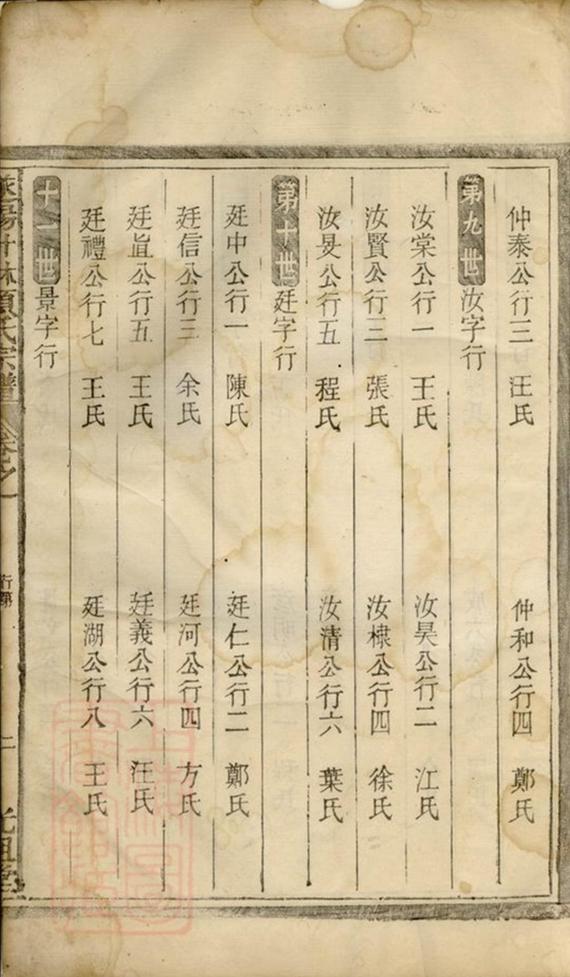 仲泰公行三 汪氏 仲和公行四 鄭氏
第九世 汝字行
汝棠公行一 王氏 汝昊公行二 江氏
汝賢公行三 張氏 汝棣公行四 徐氏
汝旻公行五 程氏 汝清公行六 葉氏
第十世 廷字行
廷中公行一 陳氏 廷仁公行二 鄭氏
廷信公行三 余氏 廷河公行四 方氏
廷直公行五 王氏 廷義公行六 汪氏
廷禮公行七 王氏 廷湖公行八 王氏
十一世 景字行
項氏宗譜 卷之一 行第 二